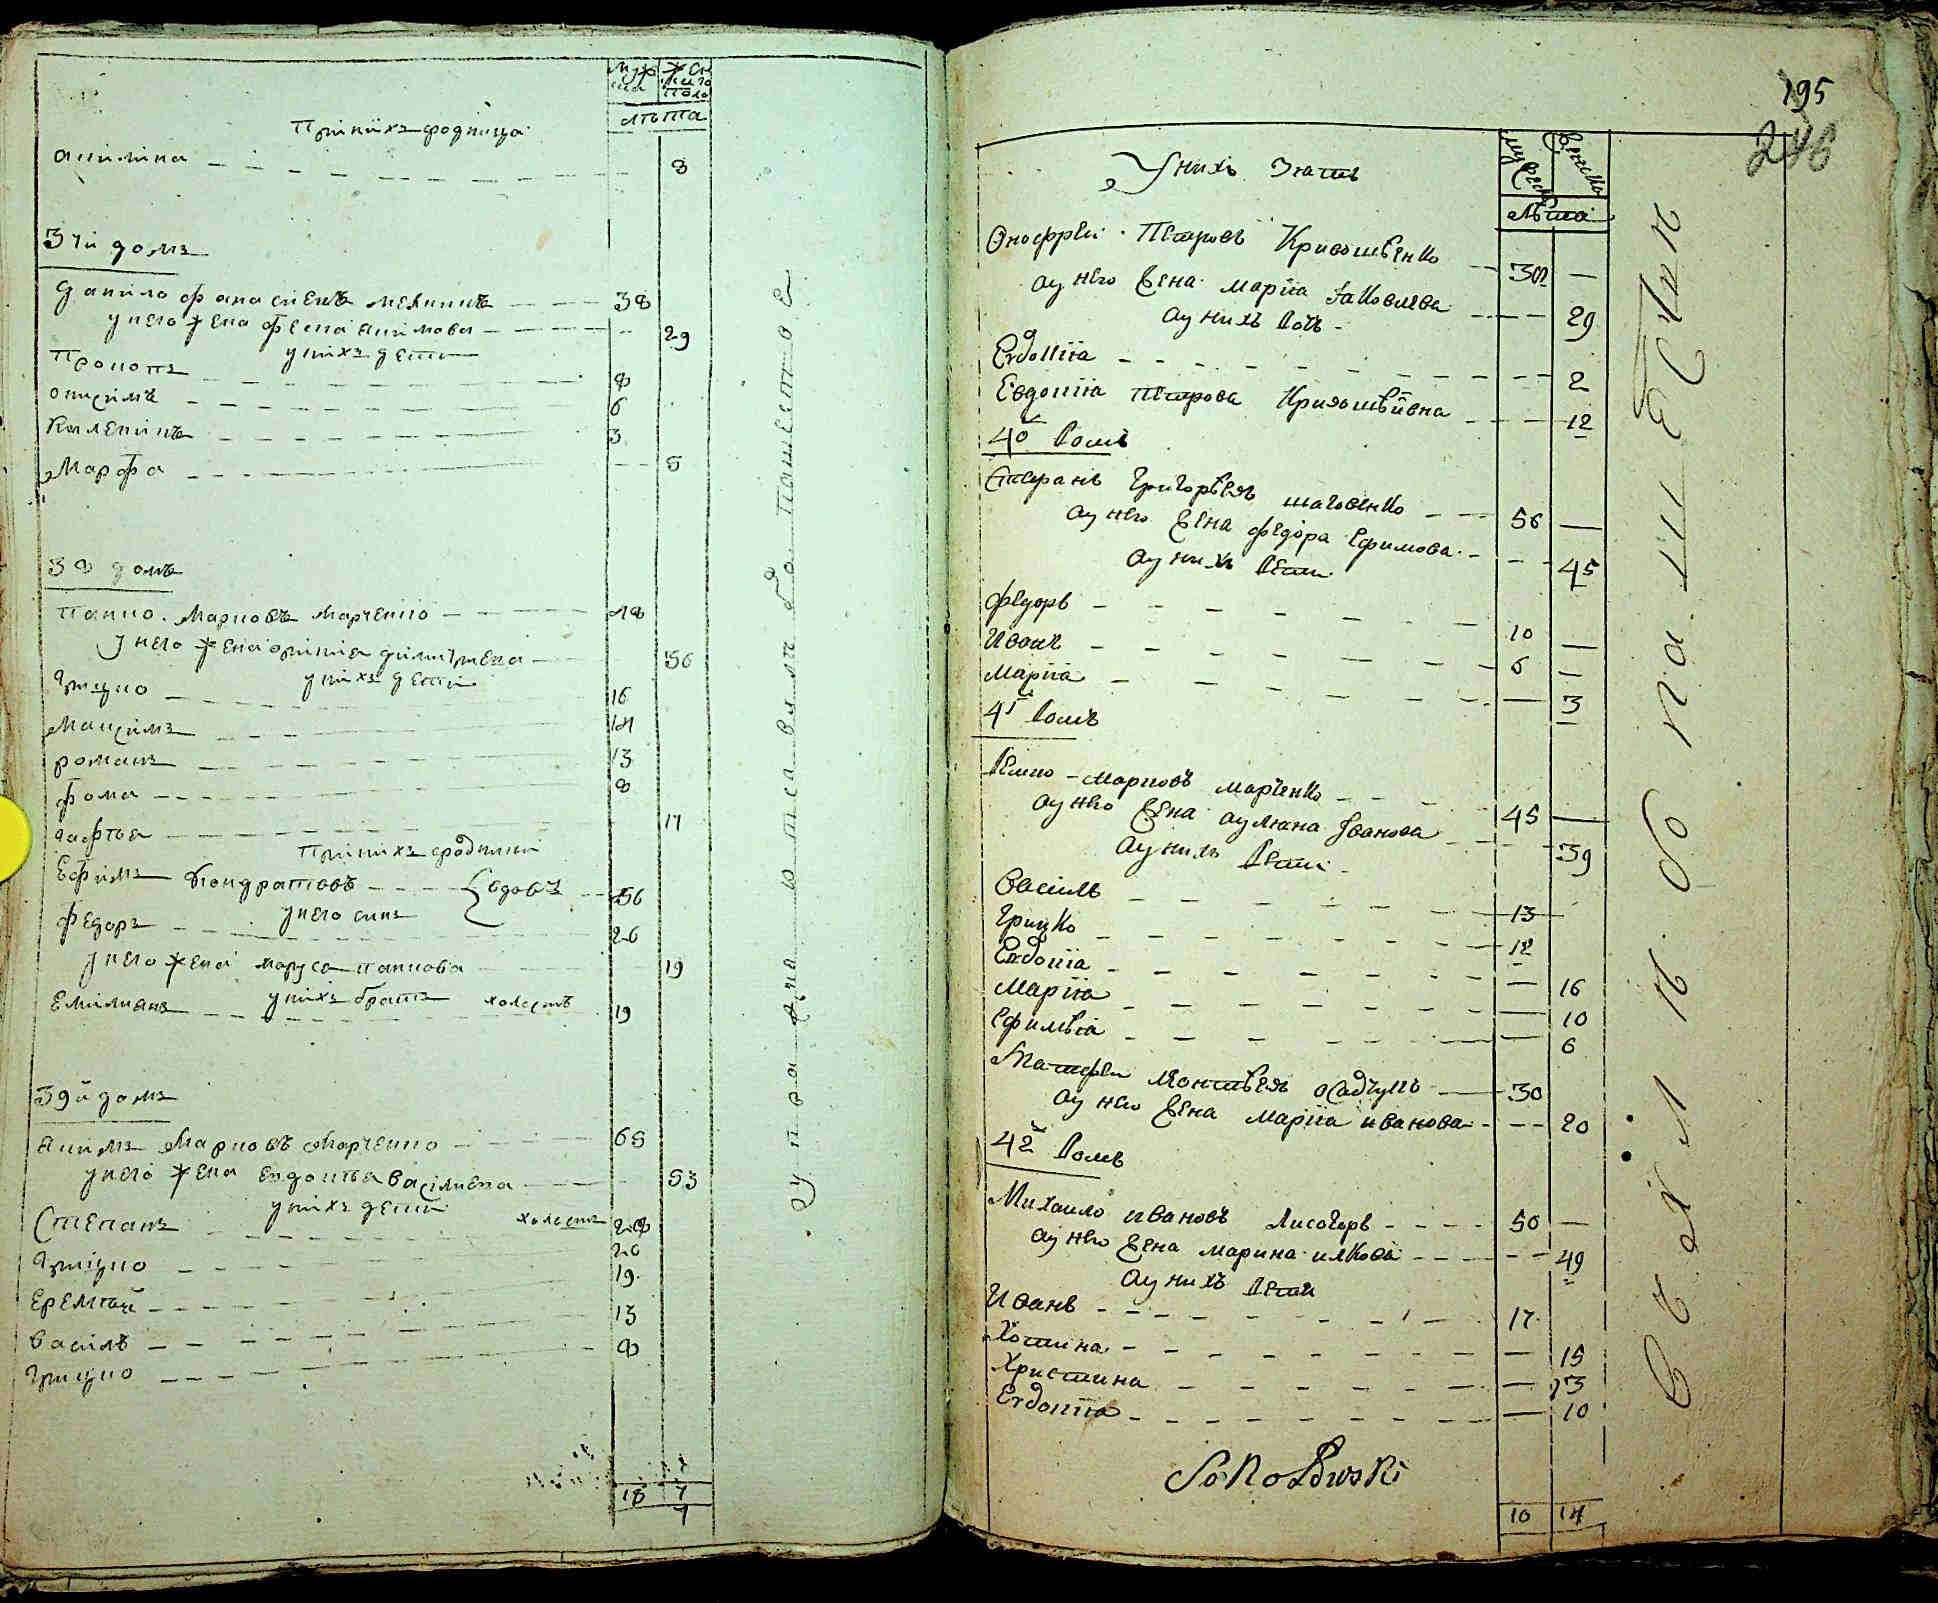 муж
ска
жен
ского
пола
лѣта
При нихъ сродница
акилина 8
37й домъ
Данило Фанасиевъ 38
у него жена Фекла Акимова 29
у нихъ дети
Прокопъ 8
онисимъ 6
Каленикъ 3
Марфа 5
38 домъ
Панко Марковъ Марченко 48
у него жена оришка димитриева 36
у нихъ дети
Грицко 16
Максимъ 14
романъ 13
фома 8
17
При нихъ сродники
Ефимъ Кондратовъ вдовъ 56
у него синъ
Федоръ 26
у него жена маруса панкова 19
у нихъ братъ
Емилианъ холостъ 19
39й домъ
Акимъ Марковъ Марченко 65
у него жена Евдокиа василиева 53
у нихъ дети
Степанъ холостъ 28
Грицко 20
Еремѣй 19
василь 13
Грицко 8
18 7
7
195
246
У нихъ Зять
муж
женско
лѣта
Онофрей Петровъ Кривошѣенко 30 —
ау него жена Марiя Iаковлева 29
ау нихъ Дочь
Евдокiя 2
Евдокiя Петрова Кривошѣивна 12
40 Домъ
Стефанъ Григорьевъ шаговенко 56 —
ау него жена Федора Ефимова 45
ау нихъ Дети
Федоръ 10 —
Иванъ 6 —
Марiя 3
41 Домъ
Демко Марковъ Марченко 45 —
ау него жена аулiяна Iванова 39
ау нихъ Дети
Василь 13
Грицко 12
Евдокiя — 16
Марiя — 10
Ефимѣя — 6
Матфей 30
ау него жена Марiя иванова 20
42 Домъ
Михайло ивановъ Лисогоръ 50 —
ау него жена Марина илкова 49
ау нихъ Дети
Иванъ 17
Хотина — 15
Христина — 13
Евдокiя — 10
Sokolowski
10 14